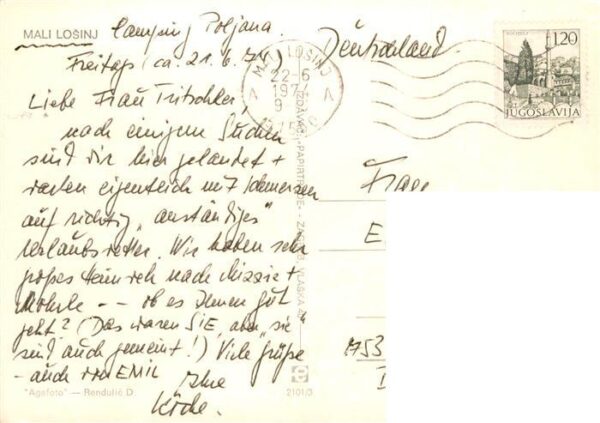 MALI LOŠINJ Camping Poljana
Freitag (ca. 21.6.74)
Liebe Frau Tritschler,
nach einigem Suchen
sind wir hier gelandet +
warten eigentlich mit Schmerzen
auf richtig „anständiges"
Urlaubswetter. Wir haben sehr
großes Heimweh nach Mizzie +
Mohrle -- ob es Ihnen gut
geht? (Das waren SIE, aber „sie"
sind auch gemeint!) Viele Grüße
- auch von EMIL
Ihre
"Agefoto" — Rendulić D.
2101/3
MALI LOŠINJ
22-6
1974
9
Deutschland
1.20
JUGOSLAVIJA
Frau
E
753